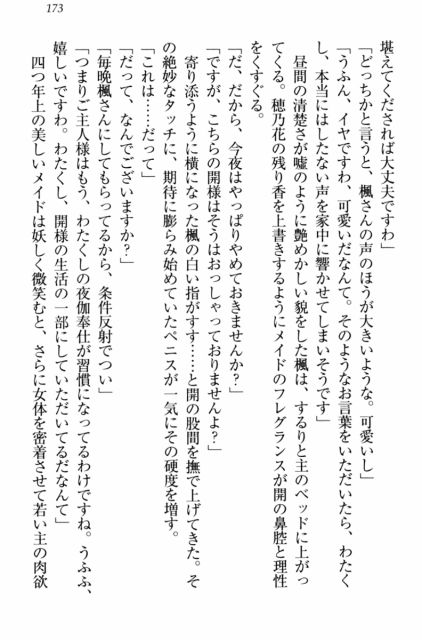 173
堪えてくだされば大丈夫ですわ」
「どっちかと言うと、楓さんの声のほうが大きいような。可愛いし」
「うふん、イヤですわ、可愛いだなんて。そのようなお言葉をいただいたら、わたく
し、本当にはしたない声を家中に響かせてしまいそうです」
昼間の清楚さが嘘のように艶めかしい貌をした楓は、するりと主のベッドに上がっ
てくる。穂乃花の残り香を上書きするようにメイドのフレグランスが開の鼻腔と理性
をくすぐる。
「だ、だから、今夜はやっぱりやめておきませんか?」
「ですが、こちらの開様はそうはおっしゃっておりませんよ?」
寄り添うように横になった楓の白い指がすす……と開の股間を撫で上げてきた。そ
の絶妙なタッチに、期待に膨らみ始めていたペニスが一気にその硬度を増す。
「これは……だって」
「だって、なんでございますか?」
「毎晩楓さんにしてもらってるから、条件反射でつい」
「つまりご主人様はもう、わたくしの夜伽奉仕が習慣になってるわけですね。うふふ、
嬉しいですわ。わたくし、開様の生活の一部にしていただいてるだなんて」
四つ年上の美しいメイドは妖しく微笑むと、さらに女体を密着させて若い主の肉欲